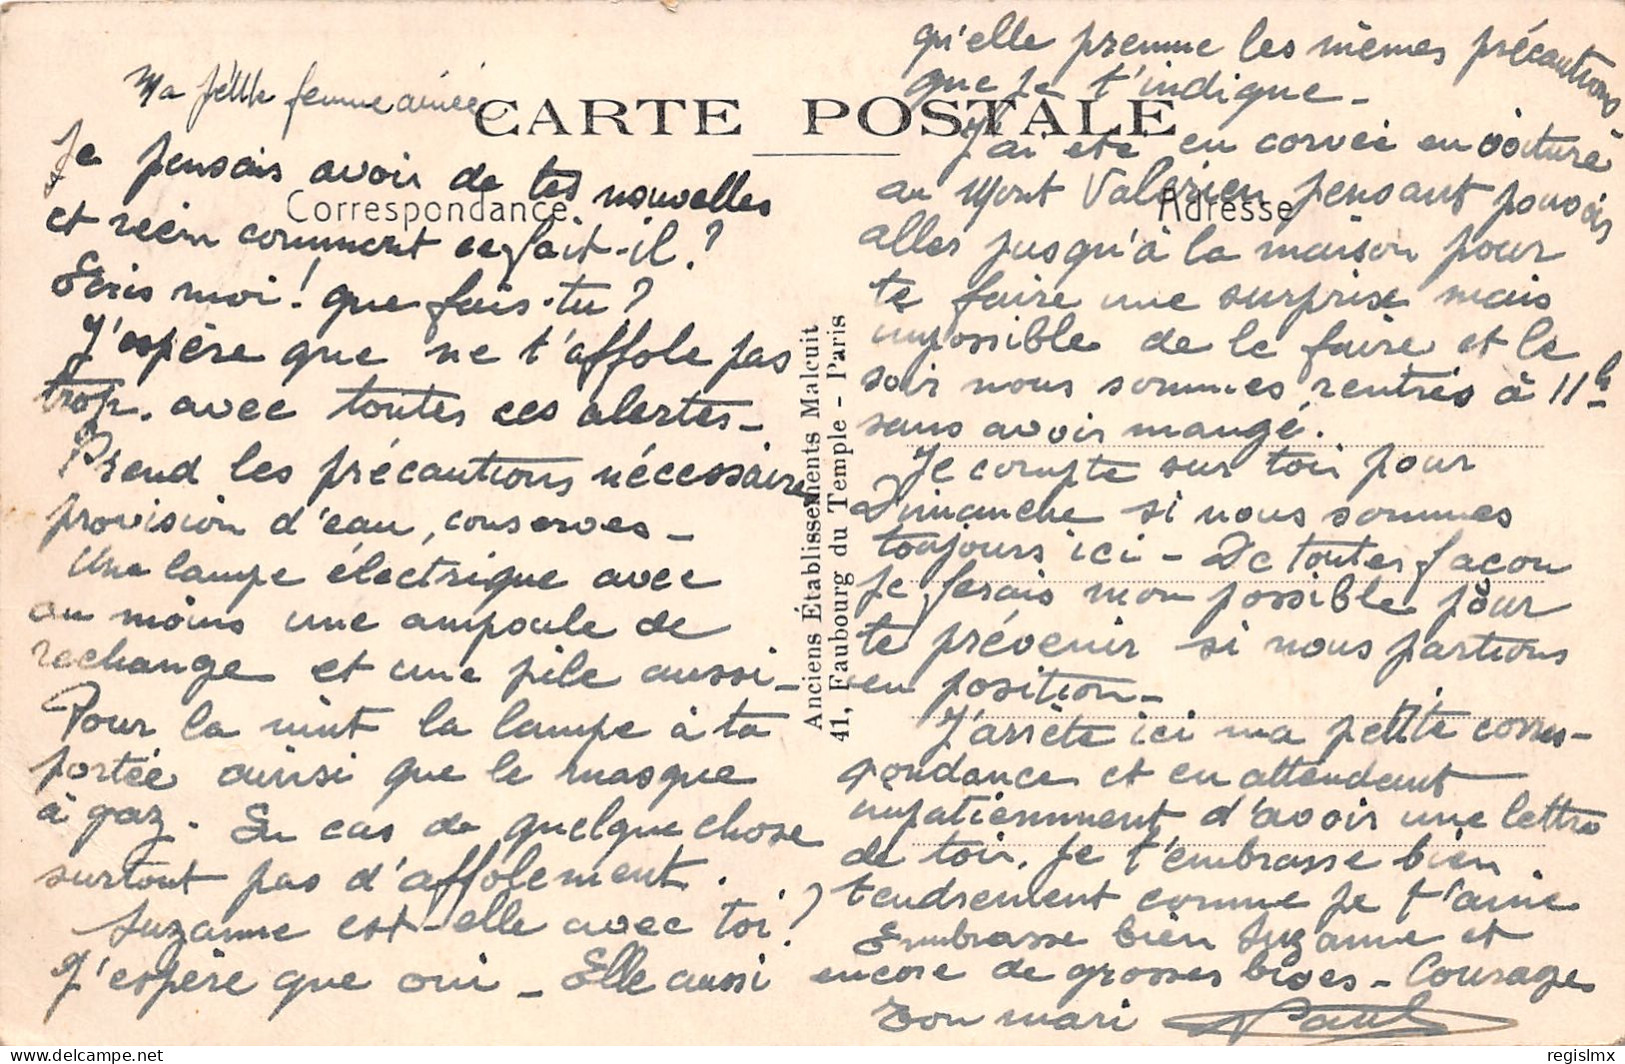 Ma petite femme aimée
CARTE POSTALE
Correspondance
Adresse
Je pensais avoir de tes nouvelles
et rien comment ce fait-il ?
Ecris moi ! que fais-tu ?
J'espère que ne t'affole pas
trop. avec toutes ces alertes_
Prend les précautions nécessaires
provision d'eau, conserves_
Une lampe électrique avec
au moins une ampoule de
rechange et une pile aussi_
Pour la nuit la lampe à ta
portée ainsi que le masque
à gaz. En cas de quelque chose
surtout pas d'affolement.
Suzanne est-elle avec toi ?
J'espère que oui _ Elle aussi
Anciens Établissements Malcuit
41, Faubourg du Temple - Paris
qu'elle prenne les mêmes précautions
que je t'indique_
J'ai été en corvée en voiture
au Mont Valérien pensant pouvoir
aller jusqu'à la maison pour
te faire une surprise mais
impossible de le faire et le
soir nous sommes rentrés à 11h
sans avoir mangé.
Je compte sur toi pour
Dimanche si nous sommes
toujours ici _ De toutes façon
je ferais mon possible pour
te prévenir si nous partions
en position_
J'arrête ici ma petite corres-
pondance et en attendant
impatiemment d'avoir une lettre
de toi, je t'embrasse bien
tendrement comme je t'aime
Embrasse bien Suzanne et
encore de grosses bises _ Courage
Ton mari Paul
delcampe.net
regislmx